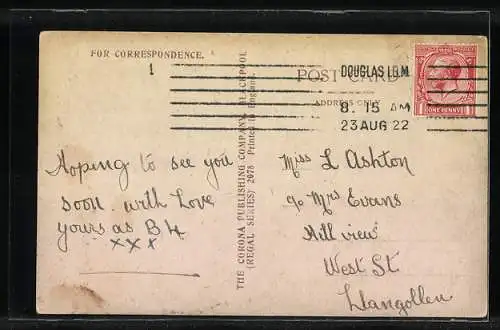 FOR CORRESPONDENCE.
1
POST CARD
ADDRESS ONLY
DOUGLAS I.O.M.
8. 15 AM
23 AUG 22
ONE PENNY
THE CORONA PUBLISHING COMPANY, BLACKPOOL
(REGAL SERIES) 2078 Printed in England.
Hoping to see you
soon with Love
yours as B4
xxx
Miss L Ashton
c/o Mrs Evans
Hill view
West St
Llangollen